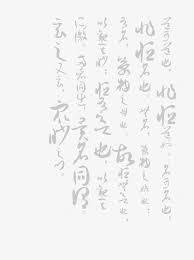 道可道也，非恒道也，名可名也，
非恒名也，无名，萬物之始也；
有名，萬物之母也，故恒无欲也，
以觀其妙；恒有欲也，以觀其
所徼，兩者同出，異名同謂，
玄之又玄，眾妙之門。